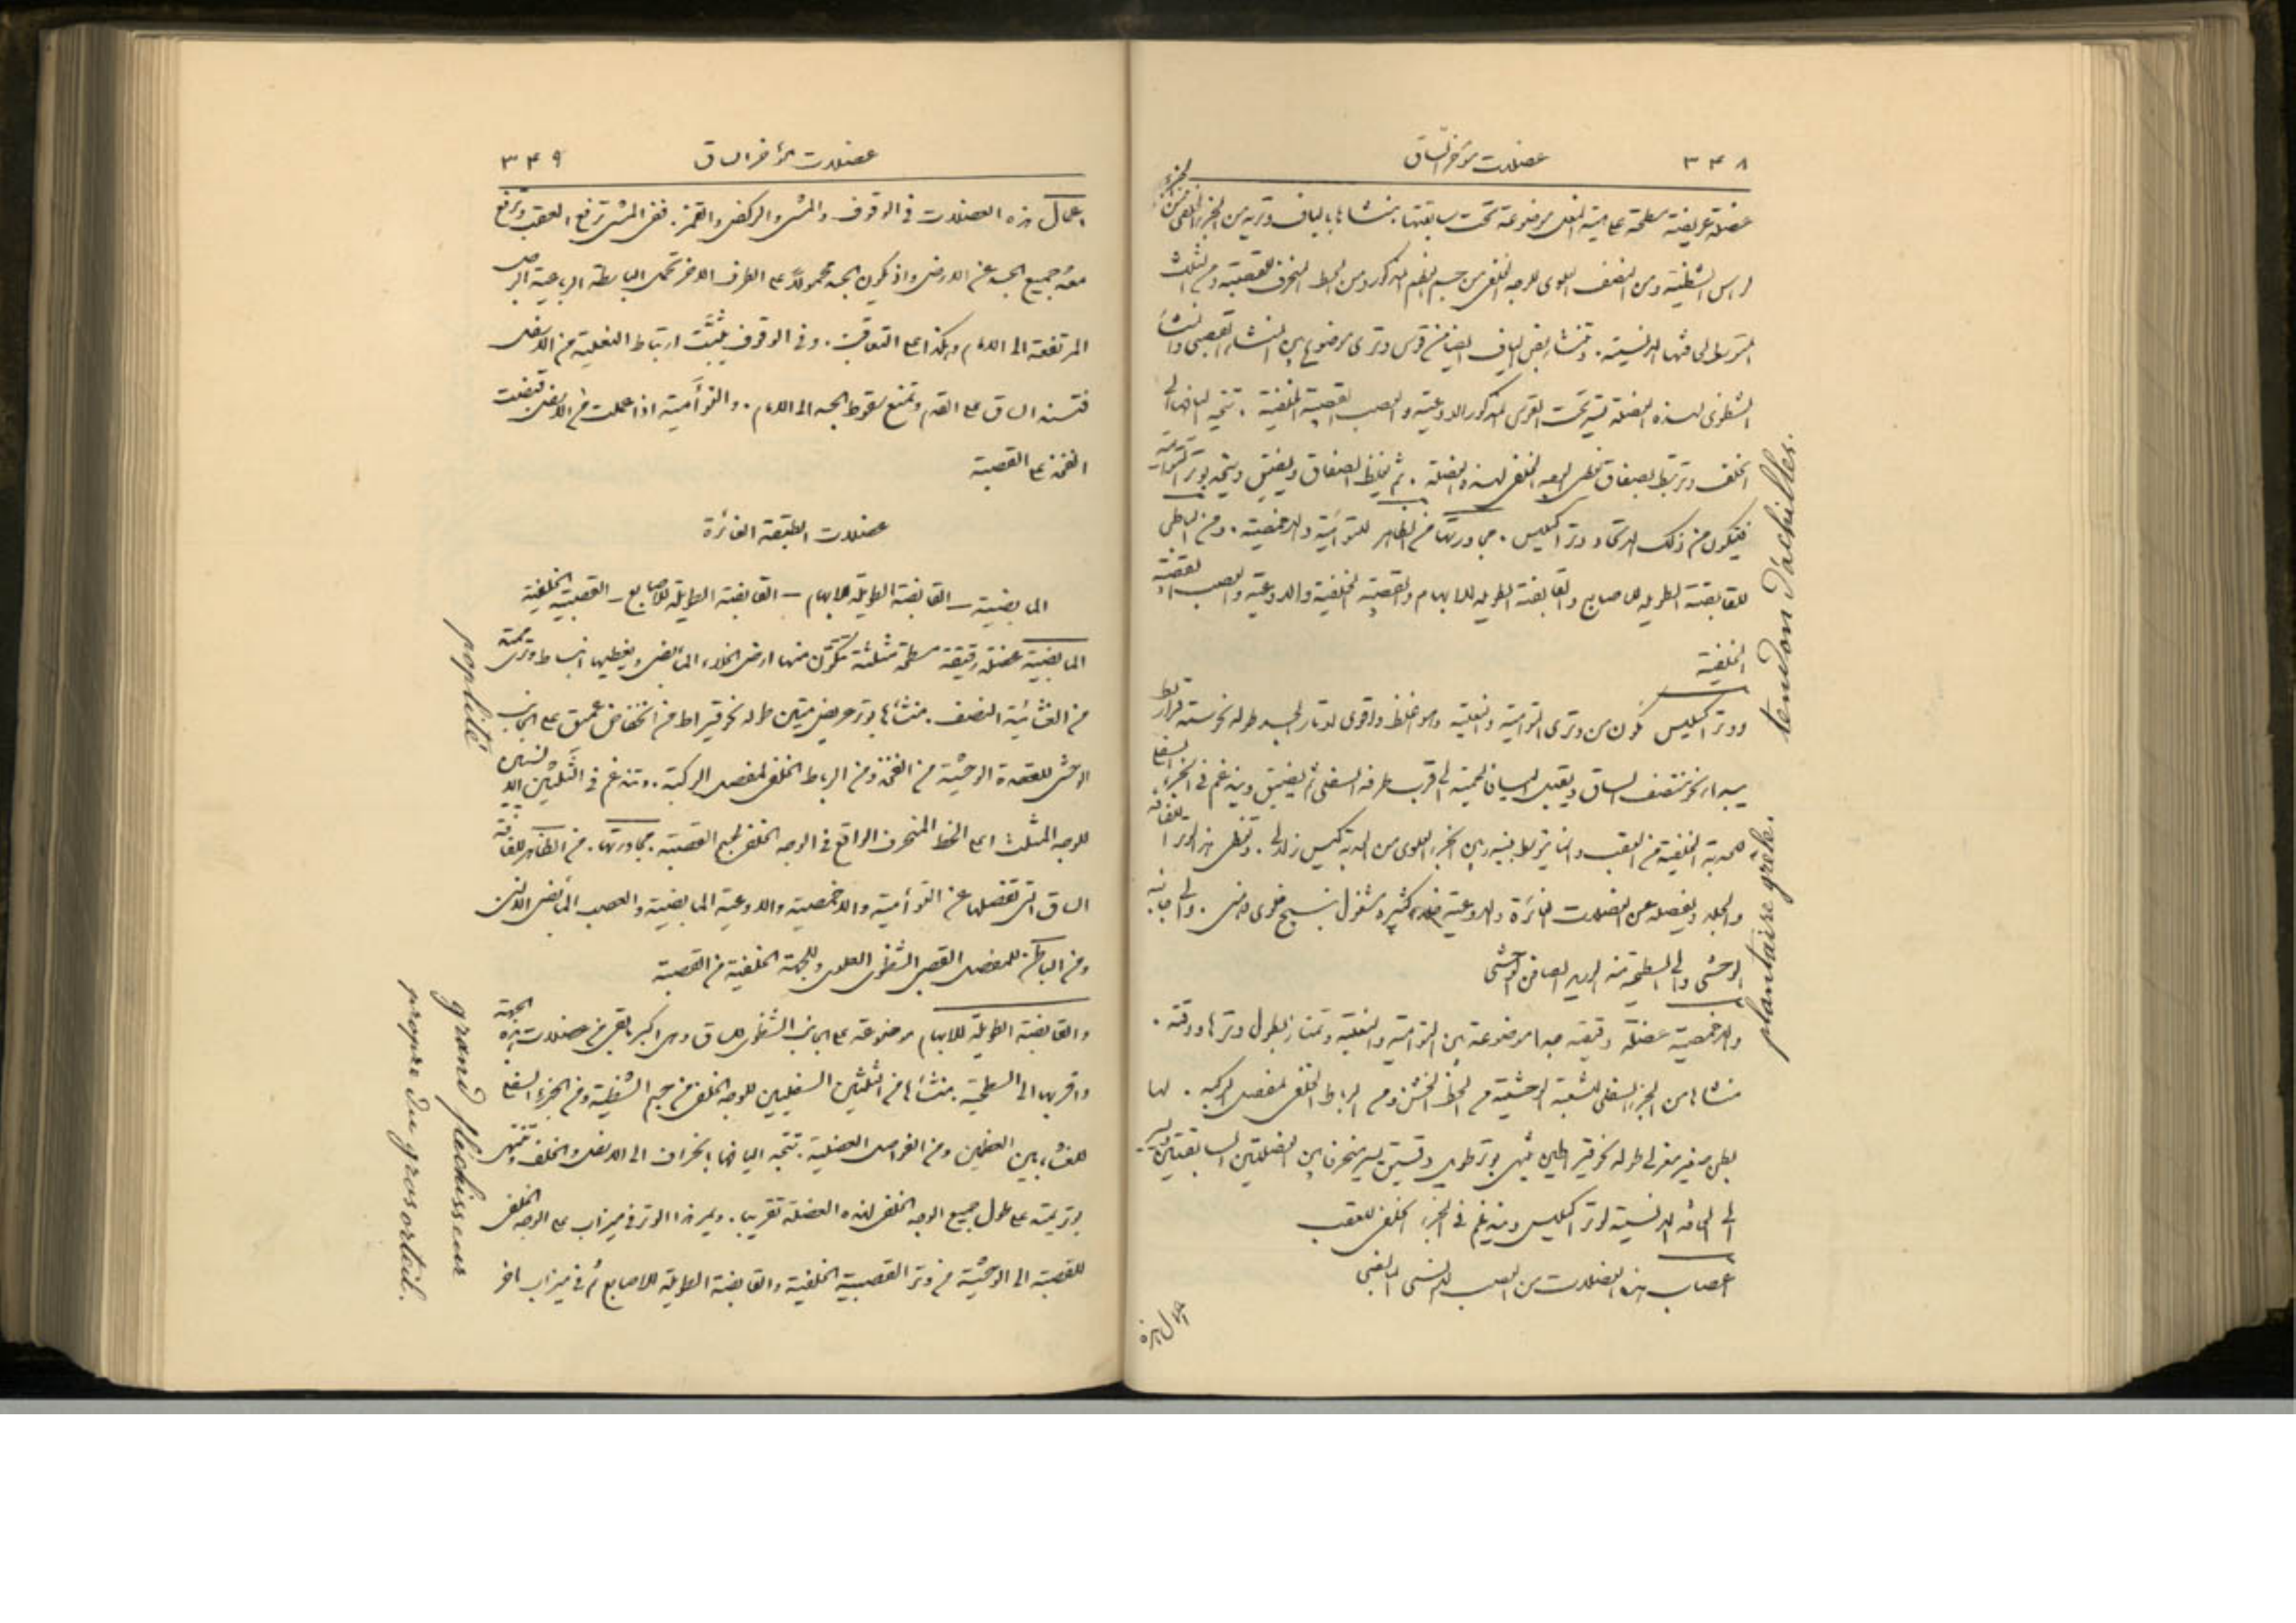 ٣٤٨ عضلات مؤخر الساق
عضلة عريضة مسطحة على هيئة النعل موضوعة تحت سابقتها. منشاها بالياف وترية من الجزء الخلفي من
لراس الشظية ومن النصف العلوي للوجه الخلفي من جسم العظم المذكور ومن الخط المنحرف للقصبة ومن الثلث
المتوسط لحافتها الانسية. وتنشا بعض الياف ايضا من قوس وتري موضوع بين المنشا القصبي والمنشا
الشظوي لهذه العضلة تمر تحت القوس المذكور الاوعية والعصب القصبية الخلفية. تتجه اليافها الى
الخلف وترتبط بصفاق يغطي الوجه الخلفي لهذه العضلة. ثم يغلظ الصفاق ويضيق ويتحد بوتر التوأمية
فيتكون من ذلك الاتحاد وتر اكيليس. مجاورتها من الظاهر للتوأمية والاخمصية. ومن الباطن
للقابضة الطويلة للاصابع والقابضة الطويلة للابهام والقصبية الخلفية والاوعية والعصب القصبية
الخلفية
ووتر اكيليس مكون من وتري التوأمية والنعلية وهو اغلظ واقوى اوتار الجسد طوله نحو ستة قراريط
يبدا نحو منتصف الساق ويقبل اليافا لحمية الى قرب طرفه السفلي ثم يضيق ويندغم في الجزء السفلي
للحدبة الخلفية من العقب وانما يتوسط بينه وبين الجزء العلوي من الحدبة كيس زلالي. وتغطي هذا الوتر اللفافة
والجلد ويفصله عن العضلات الغائرة والاوعية خلاء كثيره مشغول بنسيج خلوي دهني. والى جانبه
الوحشي والى السطحية منه الوريد الصافن الوحشي
والاخمصية عضلة دقيقة جدا موضوعة بين التوأمية والنعلية وتمتاز بطول وترها ودقته.
منشاها من الجزء السفلي للشعبة الوحشية من الخط الخشن ومن الرباط الخلفي لمفصل الركبة. لها
بطن صغير مغزلي طوله نحو قيراطين ينتهي بوتر طويل دقيق يسير منحرفا بين العضلتين السابقتين ويسير
الى الحافة الانسية لوتر اكيليس ويندغم في الجزء الخلفي للعقب
اعصاب هذه العضلات من العصب الانسي المابضي
اعمال هذه
tendon d'achilles.
plantaire grêle.
عضلات مؤخر الساق ٣٤٩
اعمال هذه العضلات في الوقوف والمشي والركض والقمز. ففي المشي ترفع العقب وترفع
معه جميع الجسد عن الارض واذ يكون الجسد محمولاً على الطرف الاخر تحمل الباسطة الرباعية الرجل
المرتفعة الى الامام وهكذا على التعاقب. وفي الوقوف يثبّت ارتباط النعلية من الاسفل
فتسند الساق على القدم وتمنع سقوط الجسد الى الامام. والتوأمية اذا عملت من الاسفل قبضت
الفخذ على القصبة
عضلات الطبقة الغائرة
المابضية - القابضة الطويلة للابهام - القابضة الطويلة للاصابع - القصبية الخلفية
المابضية عضلة رقيقة مسطحة مثلثة تتكوّن منها ارض الخلاء المابضي ويغطيها انبساط وتري ممتد
من الغشائية النصف. منشاها بوتر عريض متين طوله نحو قيراط من انخفاض عميق على الجانب
الوحشي للعقدة الوحشية من الفخذ ومن الرباط الخلفي لمفصل الركبة. وتندغم في الثلثين الانسيين
للوجه المثلث اعلى الخط المنحرف الواقع في الوجه الخلفي لجسم القصبة. مجاورتها. من الظاهر للفافة
الساق التي تفصلها عن التوأمية والاخمصية والاوعية المابضية والعصب المابضي الانسي
ومن الباطن للمفصل القصبي الشظوي العلوي وللجهة الخلفية من القصبة
والقابضة الطويلة للابهام موضوعة على الجانب الشظوي للساق وهي اكبر ما بقي من عضلات هذه الجهة
واقربها الى السطحية. منشاها من الثلثين السفليين للوجه الخلفي من جسم الشظية ومن الجزء السفلي
للغشاء بين العظمين ومن الفواصل العضلية. تتجه اليافها بانحراف الى الاسفل والخلف وتنتهي
بوتر يمتد على طول جميع الوجه الخلفي لهذه العضلة تقريبا. ويمر هذا الوتر في ميزاب على الوجه الخلفي
للقصبة الى الوحشية من وتر القصبية الخلفية والقابضة الطويلة للاصابع ثم في ميزاب اخر
poplité
grand fléchisseur
propre du gros orteil.